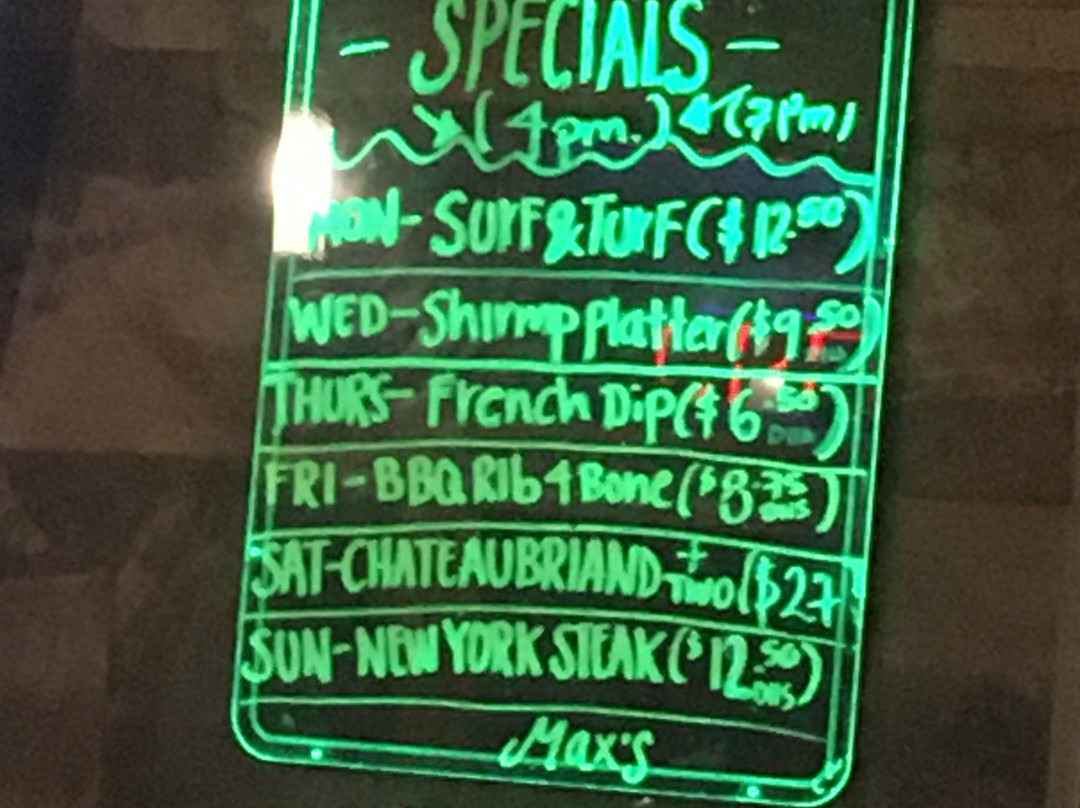 - SPECIALS -
(4pm.) (7pm)
MON- Surf&Turf ($12.50)
WED-Shirmp Platter ($9.50)
THURS- French Dip ($6.50)
FRI-BBQ RIb 4 Bone ($8.75)
SAT-CHATEAUBRIAND + TWO ($27
SUN-NEW YORK STEAK ($12.50)
Max's